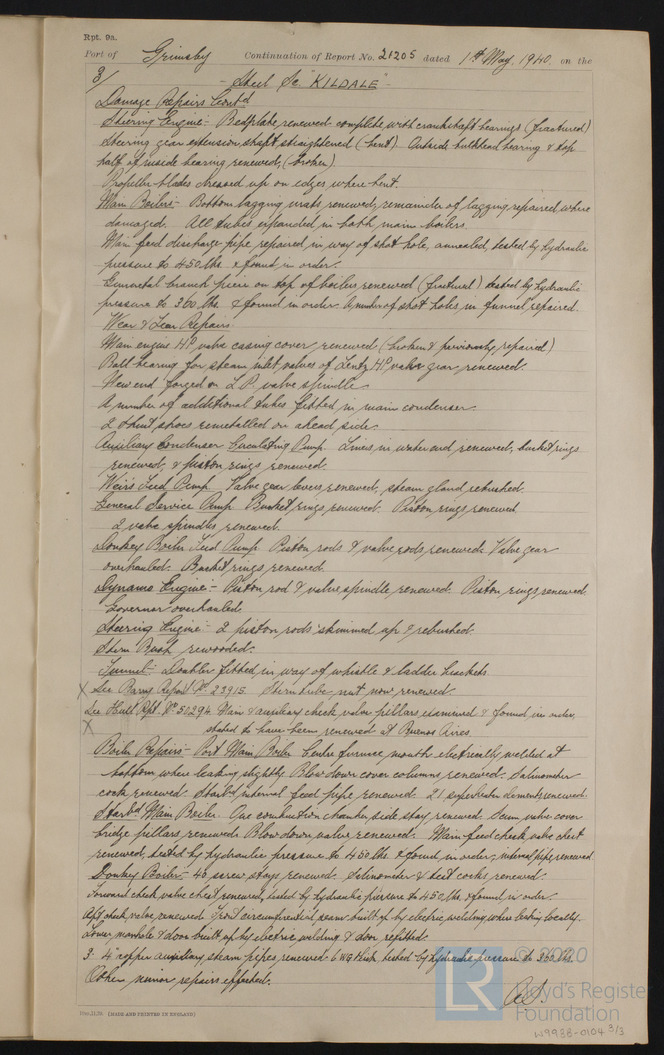 Rpt. 9a.
Port of Grimsby Continuation of Report No. 21205 dated 1st May, 1940, on the
3/
- Steel Sc "KILDALE" -
Damage Repairs Contd
Steering Engine:- Bedplate renewed complete with crankshaft bearings (fractured)
Steering gear extension shaft straightened (bent) Outside bulkhead bearing & top
half of inside bearing renewed, (broken)
Propeller blades dressed up on edges where bent.
Main Boilers:- Bottom lagging mats renewed, remainder of lagging repaired where
damaged. All tubes expanded in both main boilers.
Main feed discharge pipe repaired in way of shot hole, annealed, tested by hydraulic
pressure to 450 lbs. & found in order.
Gunmetal branch piece on top of boilers renewed (fractured) tested by hydraulic
pressure to 360 lbs. & found in order. A number of shot holes in funnel repaired.
Wear & Tear Repairs:
Main engine H.P. valve casing cover renewed (broken & previously repaired)
Ball bearing for steam inlet valves of Lentz H.P. valve gear renewed.
New end forged on L.P. valve spindle
A number of additional tubes fitted in main condenser
2 thrust shoes remetalled on ahead side.
Auxiliary Condenser Circulating Pump. Liners in water end renewed, bucket rings
renewed, & piston rings renewed.
Weir's Feed Pump Valve gear levers renewed, steam gland rebushed.
General Service Pump Bucket rings renewed. Piston rings renewed
2 valve spindles renewed.
Donkey Boiler Feed Pump Piston rods & valve rods renewed. Valve gear
overhauled. Bucket rings renewed.
Dynamo Engine:- Piston rod & valve spindle renewed. Piston rings renewed.
Governor overhauled.
Steering Engine:- 2 piston rods skimmed up & rebushed.
Stern Bush rewooded.
Funnel:- Doubler fitted in way of whistle & ladder brackets
X See Barry Report No 23915. Stern tube nut now renewed.
See Hull Rpt. No 50294. Main & auxiliary check valve pillars examined & found in order,
X stated to have been renewed at Buenos Aires.
Boiler Repairs:- Port Main Boiler Centre furnace mouth electrically welded at
bottom where leaking slightly Blow down cover columns renewed. Salinometer
cock renewed. Starbd internal feed pipe renewed. 21 superheater elements renewed
Starbd Main Boiler. One combustion chamber side stay renewed. Scum valve cover
bridge pillars renewed. Blow down valve renewed. Main feed check valve chest
renewed, tested by hydraulic pressure to 450 lbs. & found in order, internal pipe renewed
Donkey Boiler:- 40 screw stays renewed. Salinometer & test cocks renewed.
Forward check valve chest renewed, tested by hydraulic pressure to 450 lbs. & found in order.
Aft check valve renewed. Front circumferential seam built up by electric welding where leaking locally.
Lower manhole & door built up by electric welding & door refitted
3 4" copper auxiliary steam pipes renewed 6 WG thick, tested by hydraulic pressure to 360 lbs.
Other minor repairs effected.
(MADE AND PRINTED IN ENGLAND)
© 2020
LR
Lloyd's Register
Foundation
W9938-0104 3/3